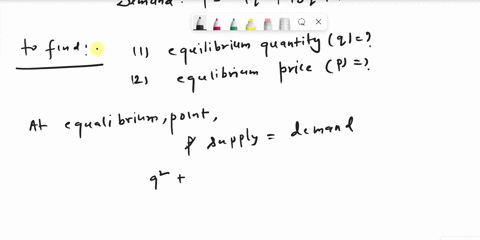 Demand:
to find:
(1) equilibrium quantity (q) = ?
(2) equlibrium price (P) = ?
At equalibrium, point,
supply = demand
q² +